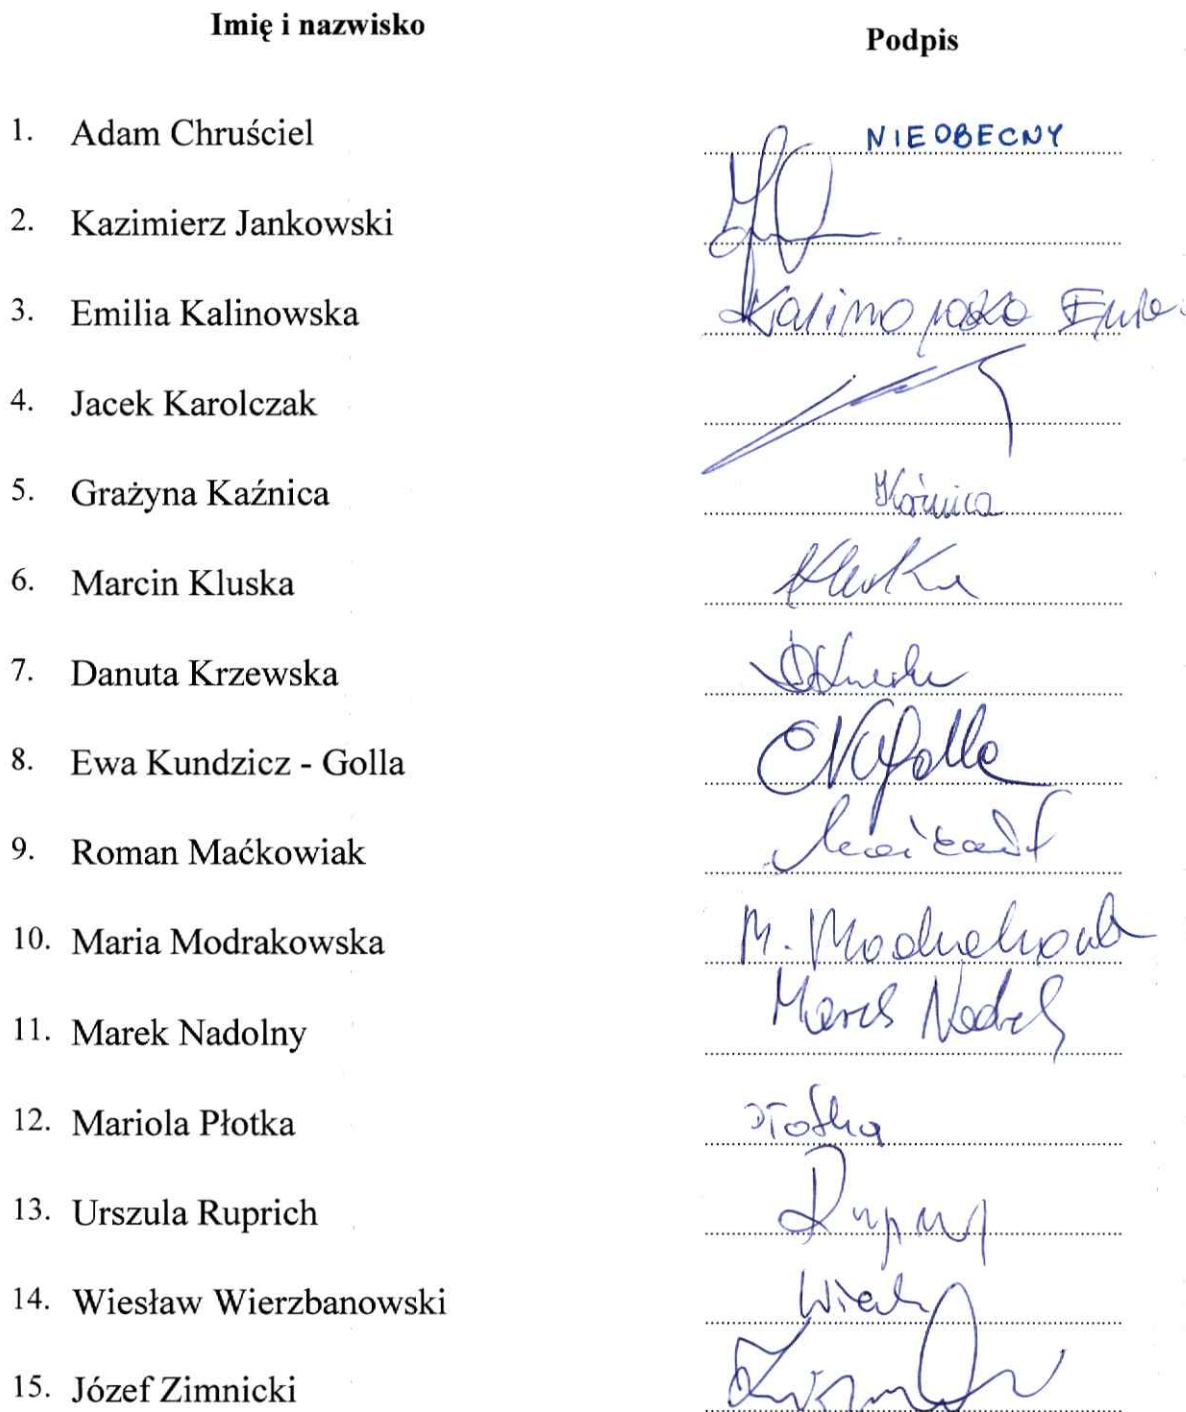 Imię i nazwisko Podpis
1. Adam Chruściel NIEOBECNY
2. Kazimierz Jankowski
3. Emilia Kalinowska
4. Jacek Karolczak
5. Grażyna Kaźnica Kaźnica
6. Marcin Kluska Kluska
7. Danuta Krzewska
8. Ewa Kundzicz - Golla
9. Roman Maćkowiak
10. Maria Modrakowska M. Modrakowska
11. Marek Nadolny Marek Nadolny
12. Mariola Płotka Płotka
13. Urszula Ruprich
14. Wiesław Wierzbanowski
15. Józef Zimnicki